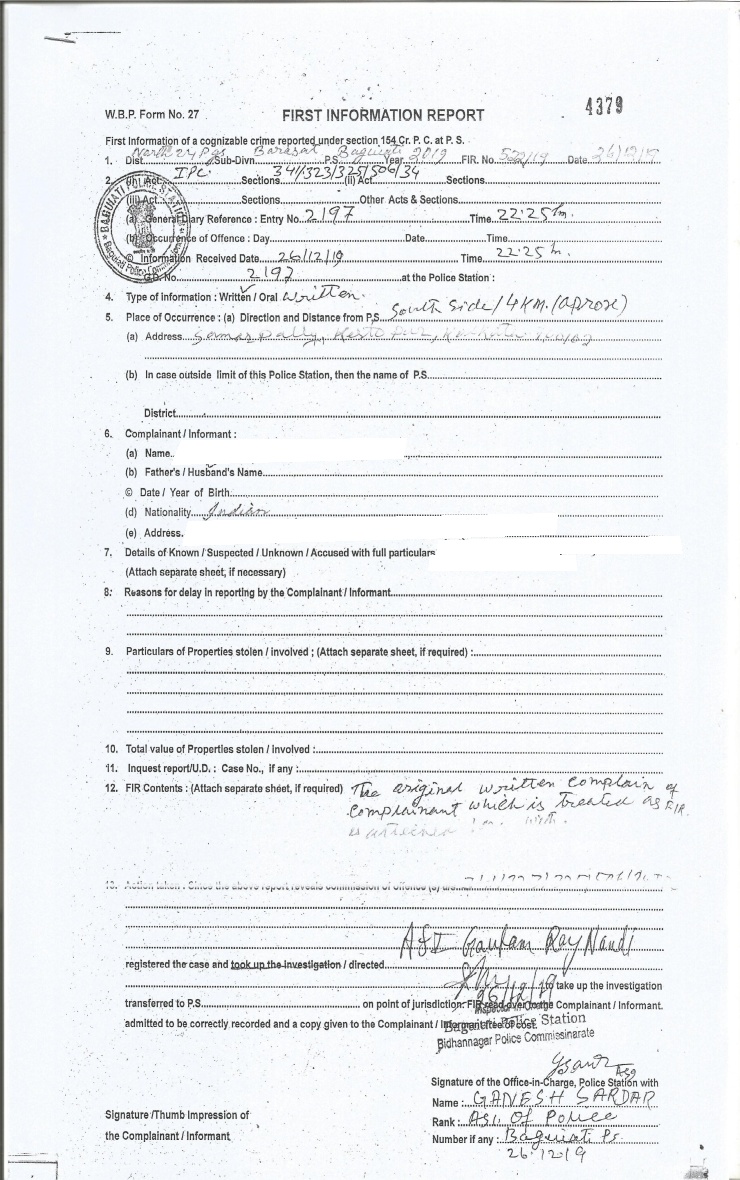 4379
W.B.P. Form No. 27 FIRST INFORMATION REPORT
First Information of a cognizable crime reported under section 154 Cr. P. C. at P. S.
1. Dist. North 24 Pgs Sub-Divn. Barasat P.S. Baguiati Year 2019 FIR. No. 522/19 Date 26/12/19
2. (i) Act IPC Sections 341/323/325/506/34 (ii) Act Sections
(iii) Act Sections Other Acts & Sections
(a) General Diary Reference : Entry No. 2197 Time 22.25 h.
(b) Occurrence of Offence : Day Date Time
© Information Received Date 26/12/19 Time 22.25 h.
G.D. No. 2197 at the Police Station :
4. Type of Information : Written / Oral written
5. Place of Occurrence : (a) Direction and Distance from P.S. South Side / 4 KM. (aprox)
(a) Address Samar Pally,
(b) In case outside limit of this Police Station, then the name of P.S.
District
6. Complainant / Informant :
(a) Name
(b) Father's / Husband's Name
© Date / Year of Birth
(d) Nationality Indian
(e) Address.
7. Details of Known / Suspected / Unknown / Accused with full particulars
(Attach separate sheet, if necessary)
8. Reasons for delay in reporting by the Complainant / Informant
9. Particulars of Properties stolen / involved ; (Attach separate sheet, if required) :
10. Total value of Properties stolen / involved :
11. Inquest report/U.D. : Case No., if any :
12. FIR Contents : (Attach separate sheet, if required) The original written complain of
complainant which is treated as FIR
is attached
13. Action taken : Since the above report reveals commission of offence (s) are
ASI Gautam Ray Nandi
registered the case and took up the investigation / directed
26/12/19 to take up the investigation
transferred to P.S. on point of jurisdiction. FIR read over to the Complainant / Informant.
admitted to be correctly recorded and a copy given to the Complainant / Informant free of cost.
Baguiati Police Station
Bidhannagar Police Commissinarate
Signature of the Office-in-Charge, Police Station with
Name : GANESH SARDAR
Signature /Thumb Impression of Rank : ASI. Of Police
the Complainant / Informant Number if any : Baguiati Ps.
26.12.19
BAGUIATI POLICE STATION